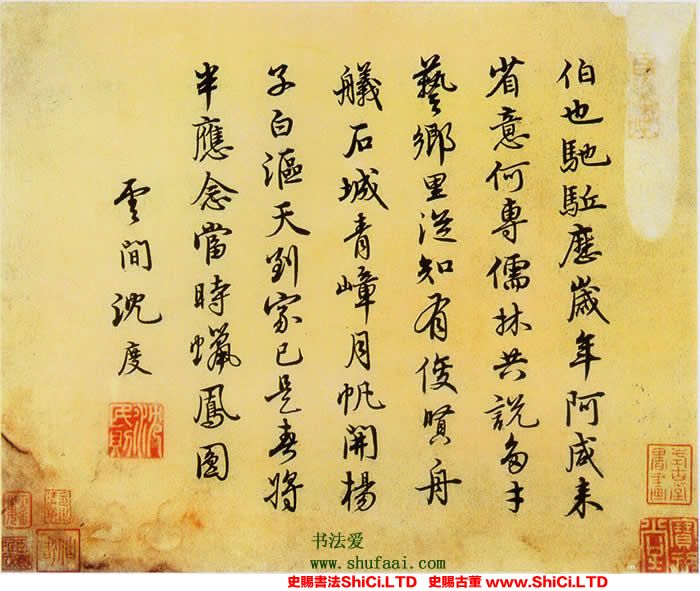 伯也馳駈應歲年阿咸来
省意何專儒林共說多才
藝鄉里從知有俊賢舟
艤石城青嶂月帆開楊
子白漚天到家已是春將
半應念當時蠟鳳圓
雲間沈度
书法爱
www.shufaai.com
史賜書法ShiCi.LTD 史賜古董 www.ShiCi.LTD